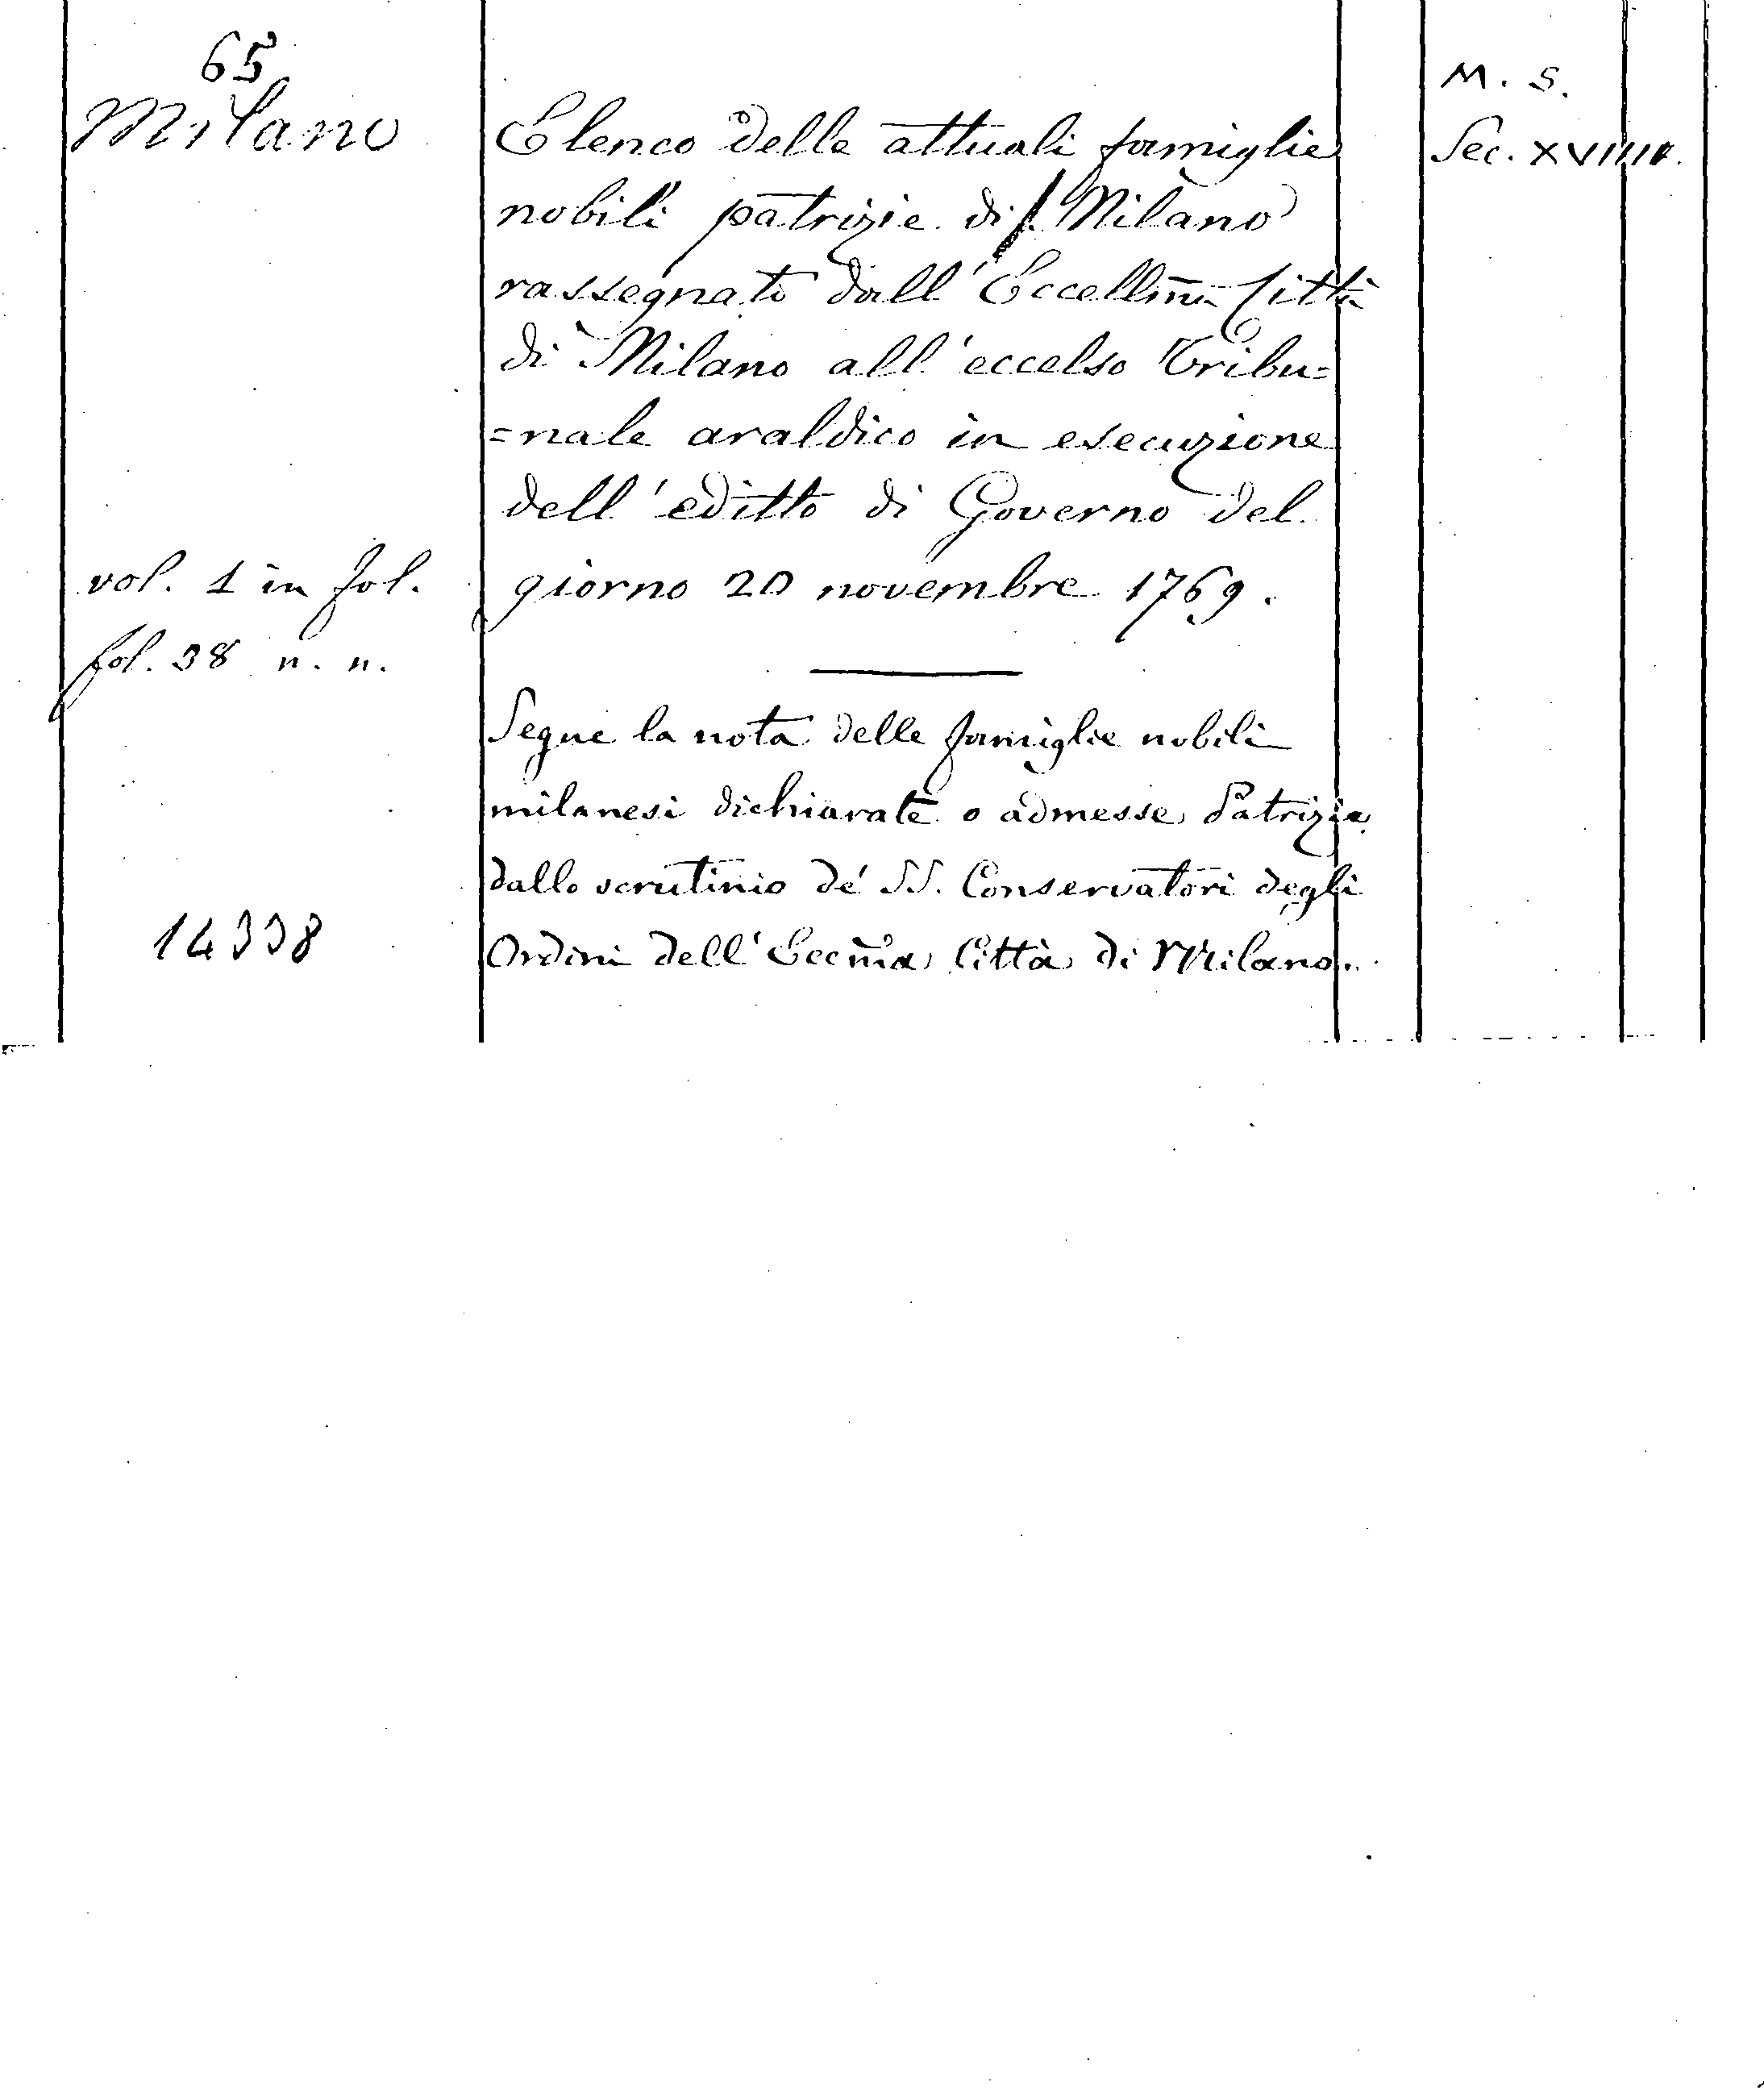 65
Milano
Elenco delle attuali famiglie
nobili patrizie di Milano
rassegnato dall'Eccellma Città
di Milano all'eccelso Tribu=
=nale araldico in esecuzione
dell'editto di Governo del
giorno 20 novembre 1769.
Segue la nota delle famiglie nobili
milanesi dichiarate o admesse Patrizie
dallo scrutinio de' SS. Conservatori degli
Ordini dell'Eccma Città di Milano.
vol. 1 in fol.
fol. 38 n. n.
14338
M. S.
Sec.